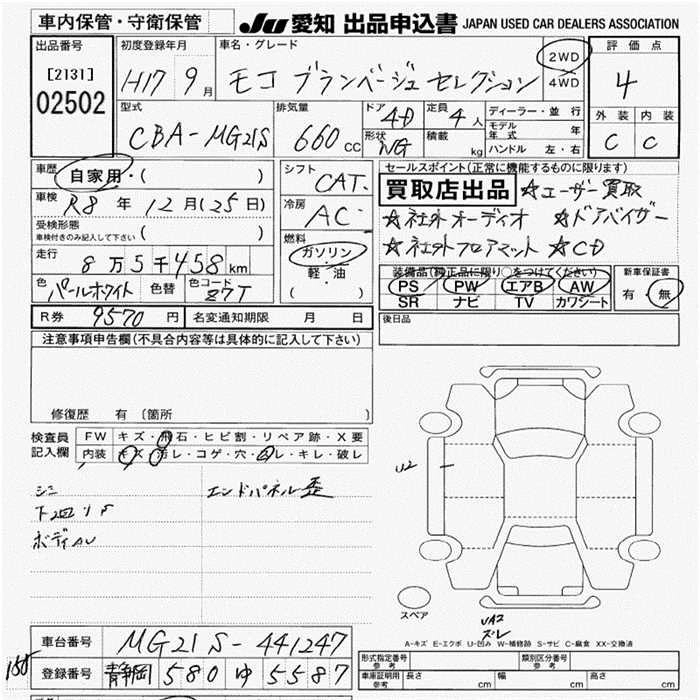 車内保管・守衛保管
JU 愛知 出品申込書 JAPAN USED CAR DEALERS ASSOCIATION
出品番号 初度登録年月 車名・グレード 評価点
[2131] H17 9月 モコ ブランベージュセレクション 2WD 4
02502 4WD
型式 排気量 ドア 4D 定員 4人 ディーラー・並行 外装 内装
CBA-MG21S 660cc 形状 積載 kg モデル年式 年 C C
ハンドル 左・右
車歴 自家用・( ) シフト CAT. セールスポイント(正常に機能するものに限ります)
車検 R8年12月(25日) 冷房 AC 買取店出品 ☆ユーザー買取
受検形態 車検付きのみ記入して下さい ( ) ☆社外オーディオ ☆ドアバイザー
走行 8万5千458km 燃料 ガソリン・軽・油 ( ) ☆社外フロアマット ☆CD
色 パールホワイト 色替 色コード Z7T
装備品(純正品に限り○をつけてください) 新車保証書
PS PW エアB AW 有・無
SR ナビ TV カワシート
R券 9570円 名変通知期限 月 日 後日品
注意事項申告欄(不具合内容等は具体的に記入して下さい)
修復歴 有 〔箇所 〕
検査員記入欄 FW キズ・飛石・ヒビ割・リペア跡・X要
内装 キズ・汚レ・コゲ・穴・スレ・キレ・破レ
エンドパネル歪
U2
ボディAU
スペア
UA2
ズレ
A-キズ E-エクボ U-凹み W-補修跡 S-サビ C-腐食 XX-交換済
車台番号 MG21S-441247
形式指定番号 参考 類別区分番号 参考
登録番号 静岡 580 ゆ 5587
車庫証明用 参考 長さ cm 幅 cm 高さ cm